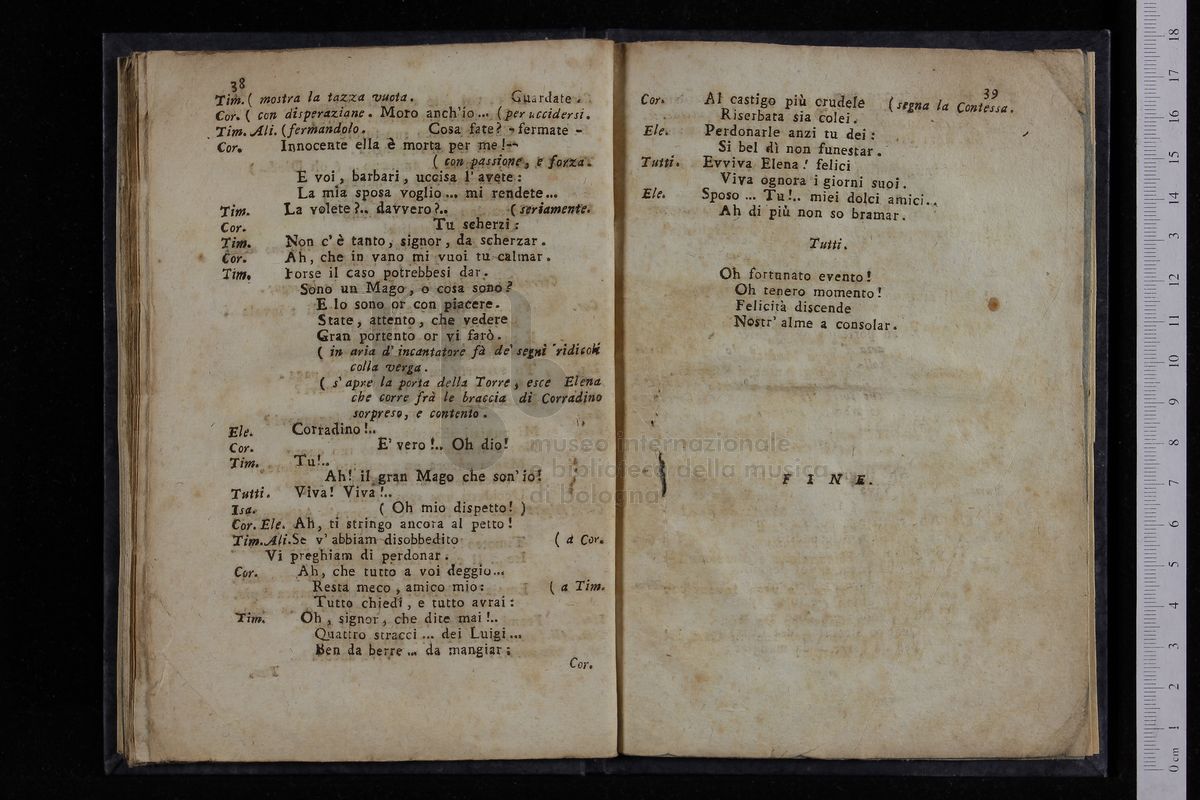 38
Tim. ( mostra la tazza vuota. Guardate.
Cor. ( con disperazione. Moro anch'io... (per uccidersi.
Tim. Ali. (fermandolo. Cosa fate? - fermate -
Cor. Innocente ella è morta per me!--
( con passione, e forza.
E voi, barbari, uccisa l'avete:
La mia sposa voglio... mi rendete...
Tim. La volete?.. davvero?.. (seriamente.
Cor. Tu scherzi:
Tim. Non c'è tanto, signor, da scherzar.
Cor. Ah, che in vano mi vuoi tu calmar.
Tim. Forse il caso potrebbesi dar.
Sono un Mago, o cosa sono?
E lo sono or con piacere.
State, attento, che vedere
Gran portento or vi farò.
( in aria d'incantatore fà de' segni ridicoli
colla verga.
( s'apre la porta della Torre, esce Elena
che corre frà le braccia di Corradino
sorpreso, e contento.
Ele. Corradino!..
Cor. E' vero!.. Oh dio!
Tim. Tu!..
Ah! il gran Mago che son'io!
Tutti. Viva! Viva!..
Isa. ( Oh mio dispetto! )
Cor. Ele. Ah, ti stringo ancora al petto!
Tim. Ali. Se v'abbiam disobbedito ( a Cor.
Vi preghiam di perdonar.
Cor. Ah, che tutto a voi deggio...
Resta meco, amico mio: ( a Tim.
Tutto chiedi, e tutto avrai:
Tim. Oh, signor, che dite mai!..
Quattro stracci... dei Luigi...
Ben da berre... da mangiar;
Cor.
39
Cor. Al castigo più crudele (segna la Contessa.
Riserbata sia colei.
Ele. Perdonarle anzi tu dei:
Si bel dì non funestar.
Tutti. Evviva Elena! felici
Viva ognora i giorni suoi.
Ele. Sposo... Tu!.. miei dolci amici..
Ah di più non so bramar.
Tutti.
Oh fortunato evento!
Oh tenero momento!
Felicità discende
Nostr'alme a consolar.
FINE.
museo internazionale
e biblioteca della musica
di bologna
0 cm 1 2 3 4 5 6 7 8 9 10 11 12 13 14 15 16 17 18